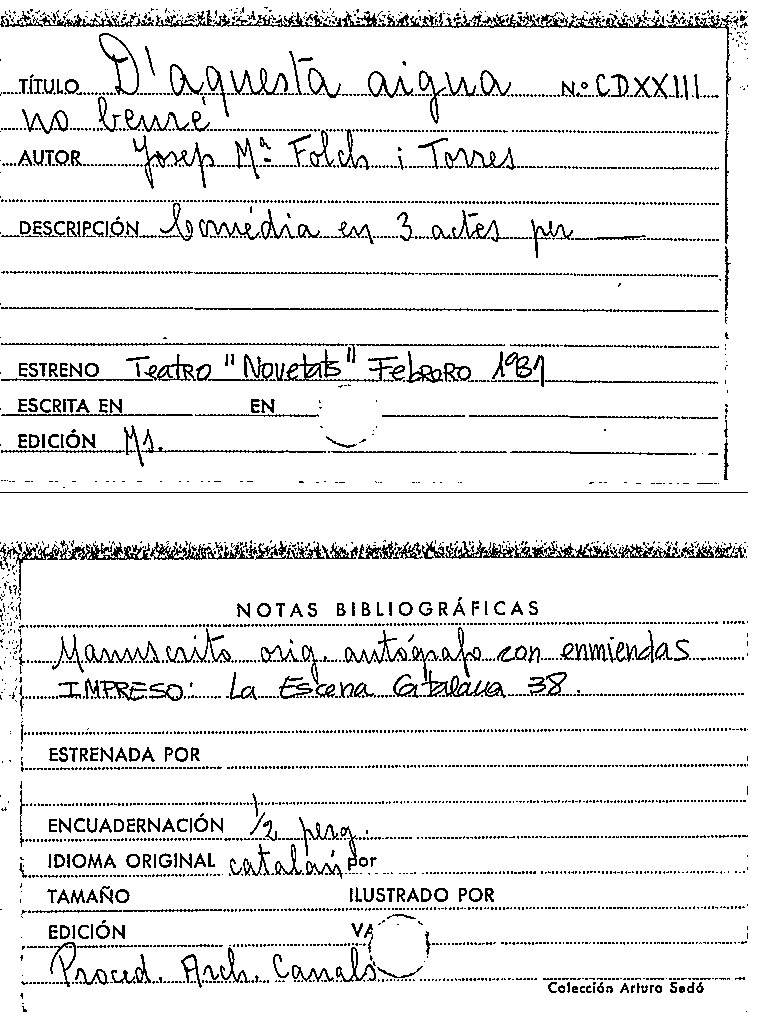 TÍTULO D'aquesta aigua N.º CDXXIII
no beuré
AUTOR Josep Mª Folch i Torres
DESCRIPCIÓN Comédia en 3 actes per —
ESTRENO Teatro "Novetats" Febrero 1931
ESCRITA EN EN
EDICIÓN Ms.
NOTAS BIBLIOGRÁFICAS
Manuscrito orig. autógrafo con enmiendas
IMPRESO: La Escena Catalana 38.
ESTRENADA POR
ENCUADERNACIÓN 1/2 perg.
IDIOMA ORIGINAL catalán por
TAMAÑO ILUSTRADO POR
EDICIÓN
Proced. Arch. Canals
Colección Arturo Sedó